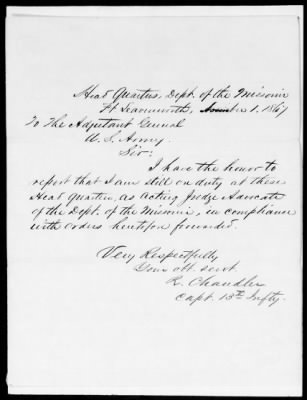 Head Quarters, Dept. of the Missouri
Ft Leavenworth, November 1. 1867
To The Adjutant General
U. S. Army.
Sir:
I have the honor to
report that I am still on duty at these
Head Quarters, as acting Judge Advocate
of the Dept. of the Missouri, in compliance
with orders heretofore forwarded.
Very Respectfully
Your obt. servt.
R. Chandler
Capt. 13th Infty.